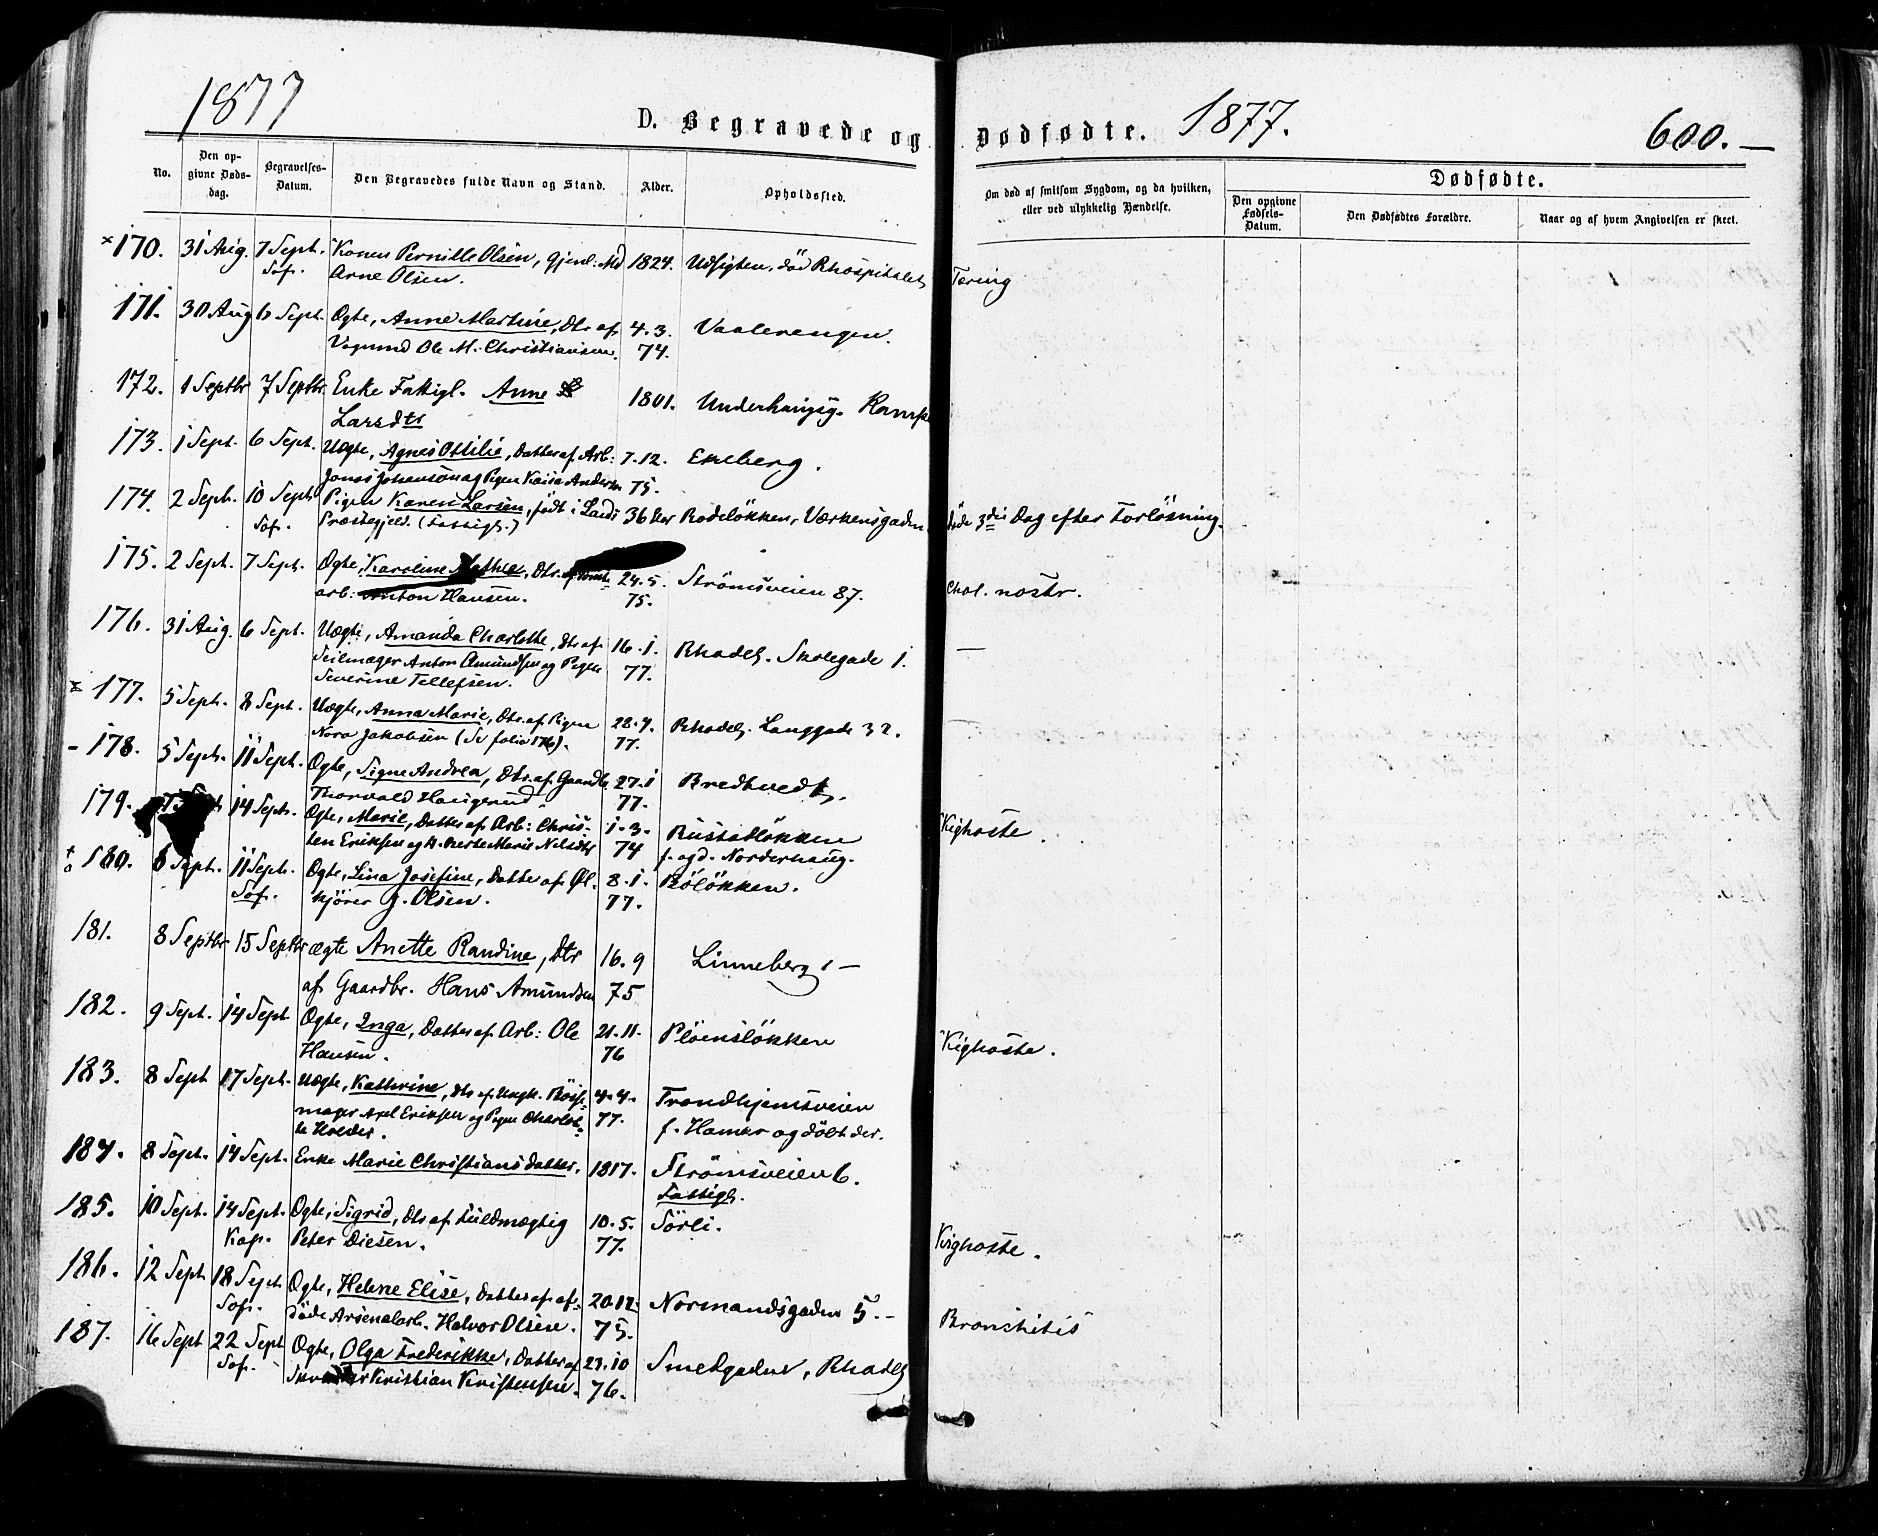 1877
D. Begravede og Dødfødte. 1877. 600. —
No. Den opgivne Dødsdag. Begravelses-Datum. Den Begravedes fulde Navn og Stand. Alder. Opholdssted. Om død af smitsom Sygdom, og da hvilken, eller ved ulykkelig Hændelse. Dødfødte.
Den opgivne Fødsels-Datum. Den Dødfødtes Forældre. Naar og af hvem Angivelsen er skeet.
×170. 31 Aug. 7 Sept. Konen Pernille Olsen, Gjenl. 1824. Udsigten, død Rhospitalet Tæring
Sof. Arne Olsen.
171. 30 Aug 6 Sept. Ægte, Anne Martine, Dtr af 4.3. Vaalerengen.
Vognmd Ole M. Christiansen. 74.
172. 1 Septbr 7 Septbr. Enke Fattigl. Anne 1801.
Larsdtr
173. 1 Sept. 6 Sept. Uægte, Agnes Ottilie, Datter af Arb: 7.12. Ekeberg.
Jonas Johanson og Pigen Kaisa Anders 75.
174. 2 Sept. 10 Sept Pigen Karen Larsen, født i Lands 36 Aar Rodeløkken, Værkensgaden død 3die Dag efter Forløsning.
Sof. Præstegjeld. (Fattigl.)
175. 2 Sept. 7 Sept. Ægte, Karoline Mathea, Dtr. af 24.5. Strømsveien 87. Chol. nostr.
arb: Anton Hansen. 75.
176. 31 Aug. 6 Sept. Uægte, Amanda Charlotte, Dtr af 16.1. Rhodel. Skolegade 1. —
Seilmager Anton Amundsen og Pigen 77.
Severine Tellefsen.
177. 5 Sept. 8 Sept. Uægte, Anna Marie, Dtr. af Pigen 28.7. Rhodel. Langgade 32.
Nora Jakobsen (Se folio 176). 77.
- 178. 5 Sept. 11 Sept. Ægte, Signe Andrea, Dtr. af Gaardbr 27.1 Bredtvedt.
Thorvald Haugerud 77.
179. 14 Sept. Ægte, Marie, Datter af Arb: Chris- 1.3. Rustadløkken Kighoste.
ten Eriksen og Marie Nilsdtr 74 f. og d. Norderhaug.
180. 8 Sept. 11 Sept. Ægte, Lina Josefine, Datter af Øl- 8.1. Røløkken.
Sof. kjører J. Olsen. 77.
181. 8 Septbr 15 Septbr ægte Anette Randine, Dtr 16.9 Linneberg. —
af Gaardbr. Hans Amundsen 75
182. 9 Sept. 14 Sept Ægte, Inga, Datter af Arb: Ole 21.11. Pløensløkken Kighoste.
Hansen. 76
183. 8 Sept 17 Sept. Uægte, Kathrine, Dtr af Ungk. 4.4. Trondhjemsveien
mager Axel Eriksen og Pigen Charlot- 77. f. Hamar og døbt der.
te Holder.
184. 8 Sept. 14 Sept. Enke Marie Christiansdatter. 1817. Strømsveien 6.
Fattigl.
185. 10 Sept. 14 Sept. Ægte, Sigrid, Dtr af Fuldmægtig 10.5. Sørli. Kighoste.
Kap. Peter Diesen. 77.
186. 12 Sept 18 Sept Ægte, Helene Elise, Datter af af- 20.12. Normandsgaden 5. – Bronchitis
Sof. døde Arsenalarb. Halvor Olsen. 75.
187. 16 Sept 22 Sept Ægte, Olga Frederikke, Datter af 23.10 Smedgaden, Rhodel
Sof. Skrædder Kristian Kristensen. 76.